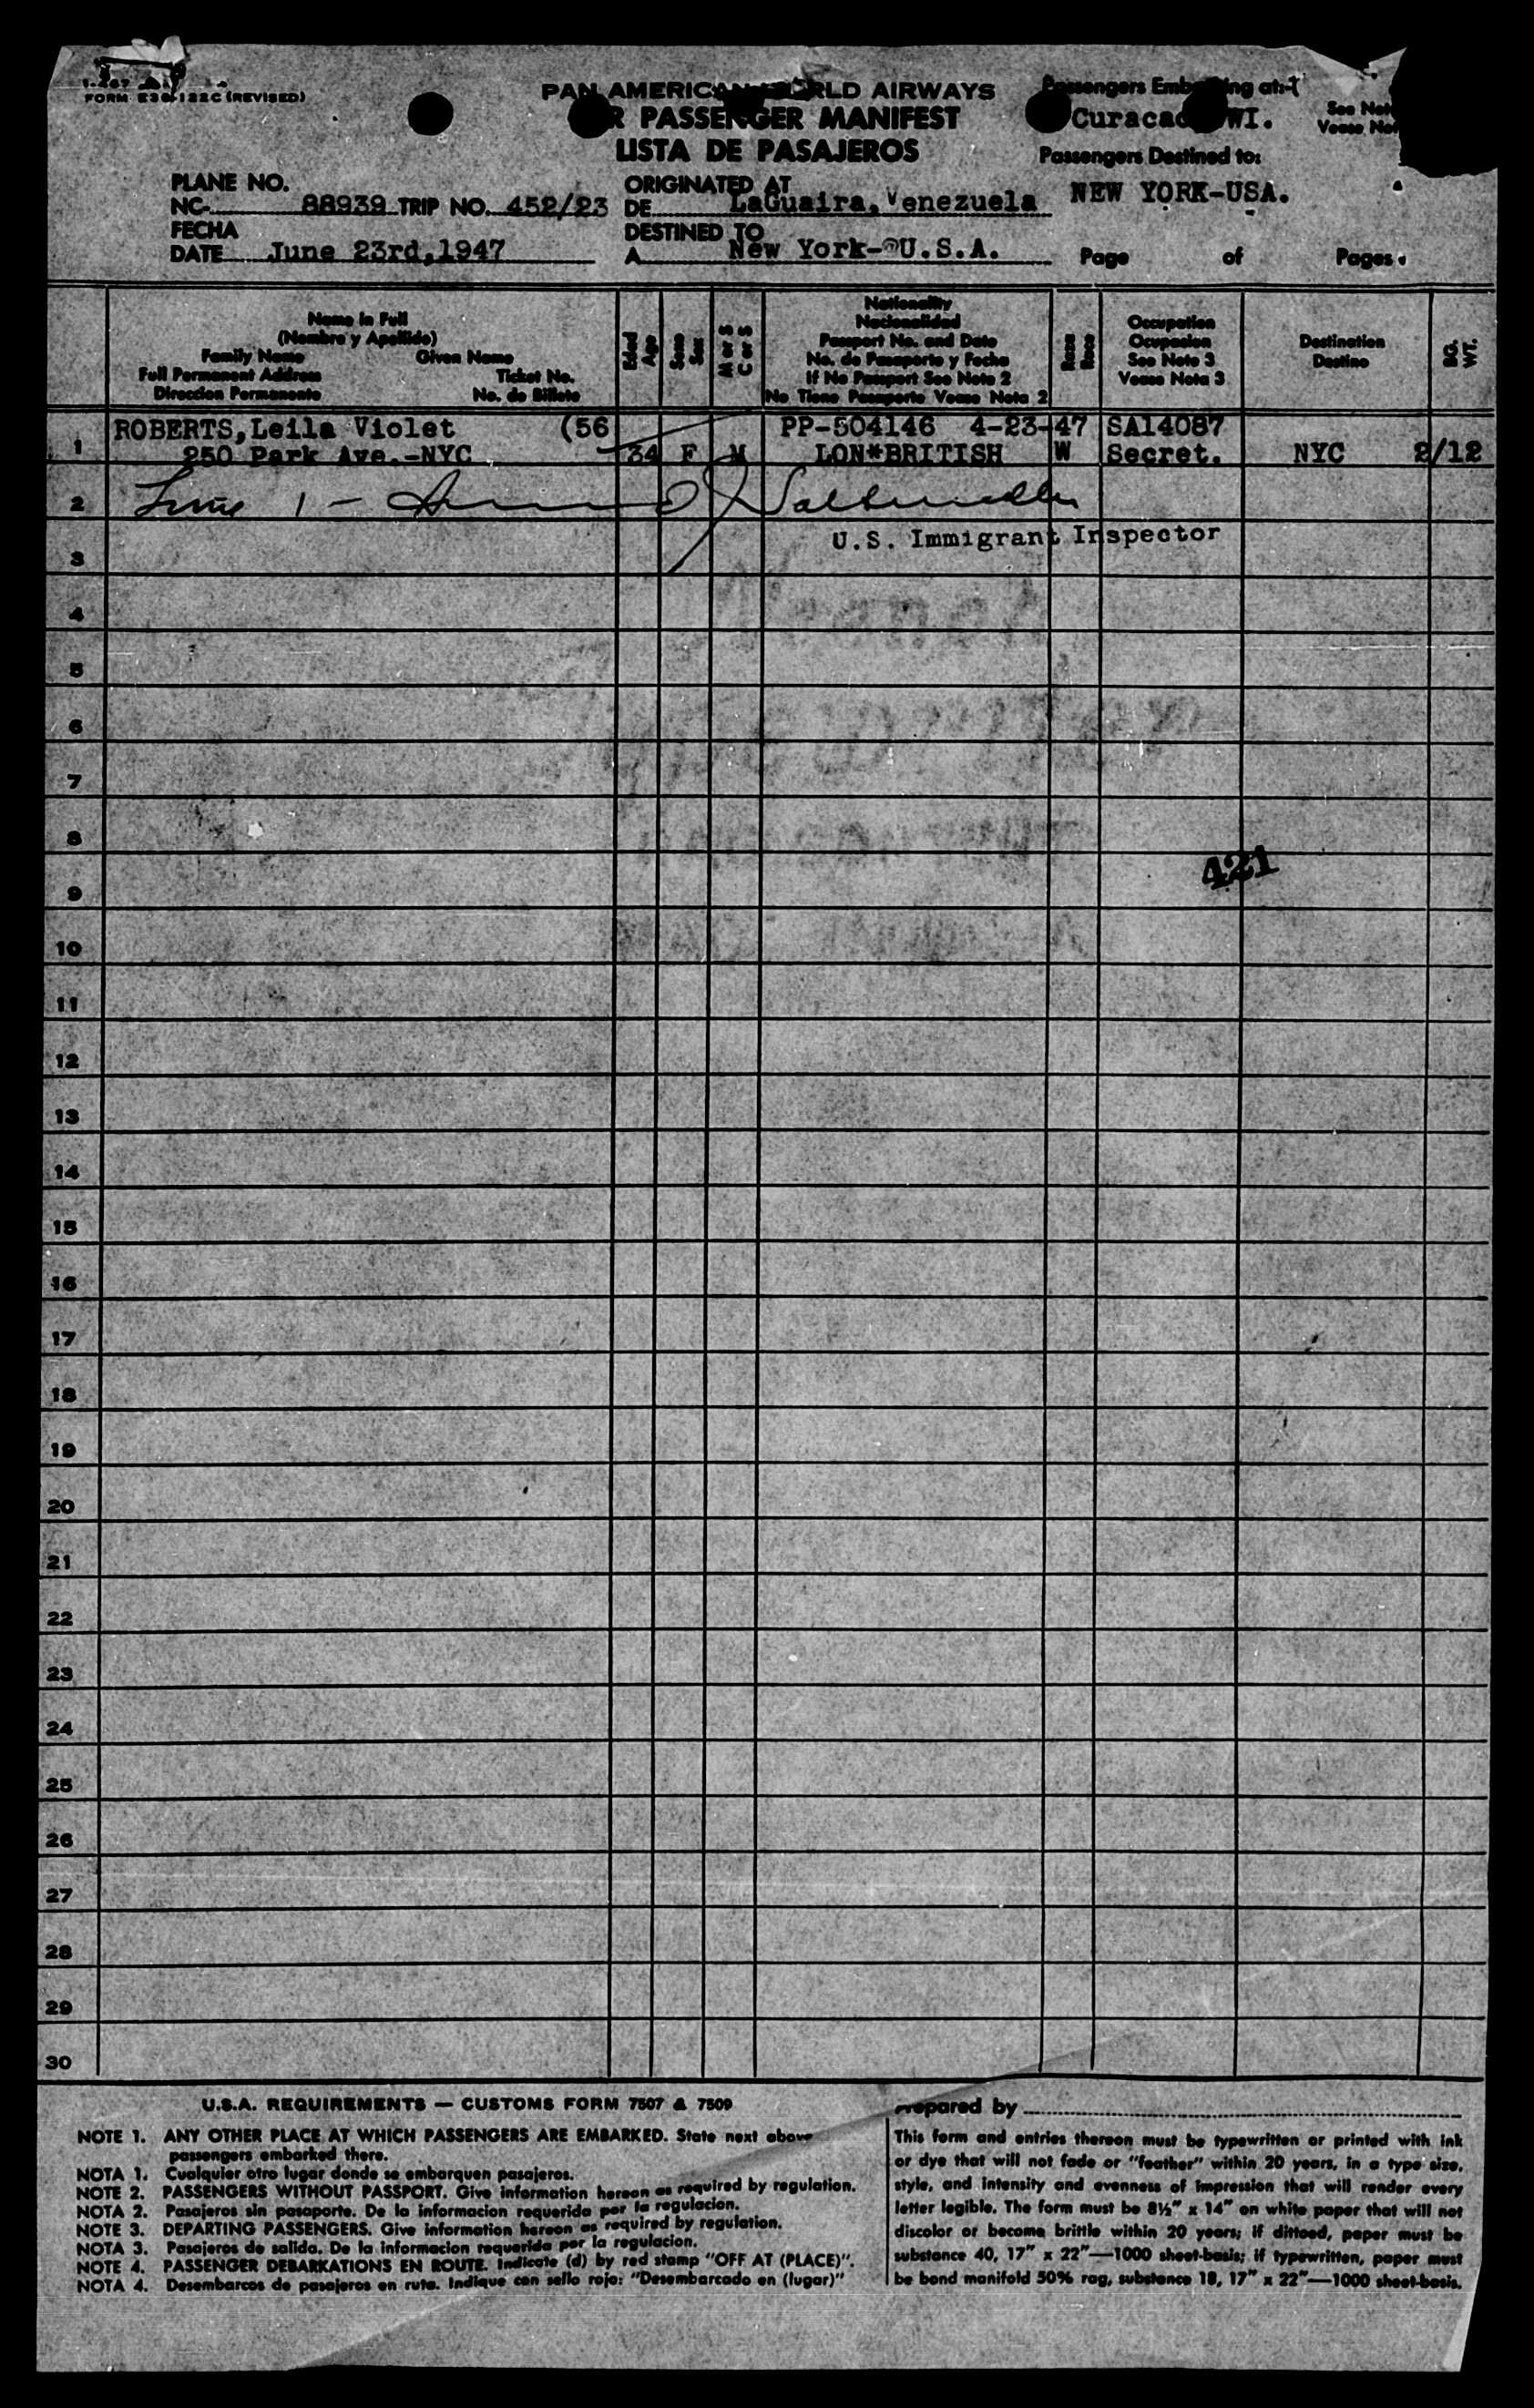 FORM 236-122C (REVISED)
PAN AMERICAN WORLD AIRWAYS
PASSENGER MANIFEST
LISTA DE PASAJEROS
Passengers Embarking at:-
Curacao WI.
See Not
Vease Not
Passengers Destined to:
NEW YORK-USA.
PLANE NO.
NC- 88939 TRIP NO. 452/23
FECHA
DATE June 23rd,1947
ORIGINATED AT
DE LaGuaira, Venezuela
DESTINED TO
A New York- U.S.A.
Page of Pages.
Name in Full
(Nombre y Apellido)
Family Name Given Name
Full Permanent Address Ticket No.
Direccion Permanente No. de Billete
Edad
Age
Sexo
Sex
M or S
C or S
Nationality
Nacionalidad
Passport No. and Date
No. de Pasaporte y Fecha
If No Passport See Note 2
No Tiene Pasaporte Vease Nota 2
Raza
Race
Occupation
Ocupacion
See Note 3
Vease Nota 3
Destination
Destino
BG.
WT.
1 ROBERTS,Leila Violet (56 PP-504146 4-23-47 SA14087
250 Park Ave.-NYC 34 F M LON*BRITISH W Secret. NYC 2/12
2 Line 1 -
U.S. Immigrant Inspector
3
4
5
6
7
8
421
9
10
11
12
13
14
15
16
17
18
19
20
21
22
23
24
25
26
27
28
29
30
U.S.A. REQUIREMENTS — CUSTOMS FORM 7507 & 7509
NOTE 1. ANY OTHER PLACE AT WHICH PASSENGERS ARE EMBARKED. State next above
passengers embarked there.
NOTA 1. Cualquier otro lugar donde se embarquen pasajeros.
NOTE 2. PASSENGERS WITHOUT PASSPORT. Give information hereon as required by regulation.
NOTA 2. Pasajeros sin pasaporte. De la informacion requerida por la regulacion.
NOTE 3. DEPARTING PASSENGERS. Give information hereon as required by regulation.
NOTA 3. Pasajeros de salida. De la informacion requerida por la regulacion.
NOTE 4. PASSENGER DEBARKATIONS EN ROUTE. Indicate (d) by red stamp "OFF AT (PLACE)".
NOTA 4. Desembarcos de pasajeros en ruta. Indique con sello rojo: "Desembarcado en (lugar)"
Prepared by
This form and entries thereon must be typewritten or printed with ink
or dye that will not fade or "feather" within 20 years, in a type size,
style, and intensity and evenness of impression that will render every
letter legible. The form must be 8½" x 14" on white paper that will not
discolor or become brittle within 20 years; if dittoed, paper must be
substance 40, 17" x 22"—1000 sheet-basis; if typewritten, paper must
be bond manifold 50% rag, substance 18, 17" x 22"—1000 sheet-basis.